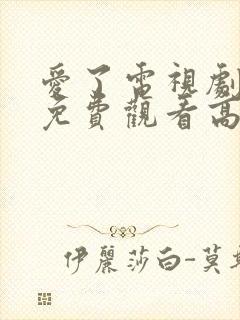 愛了電視劇
免費觀看高
伊麗莎白-莫斯